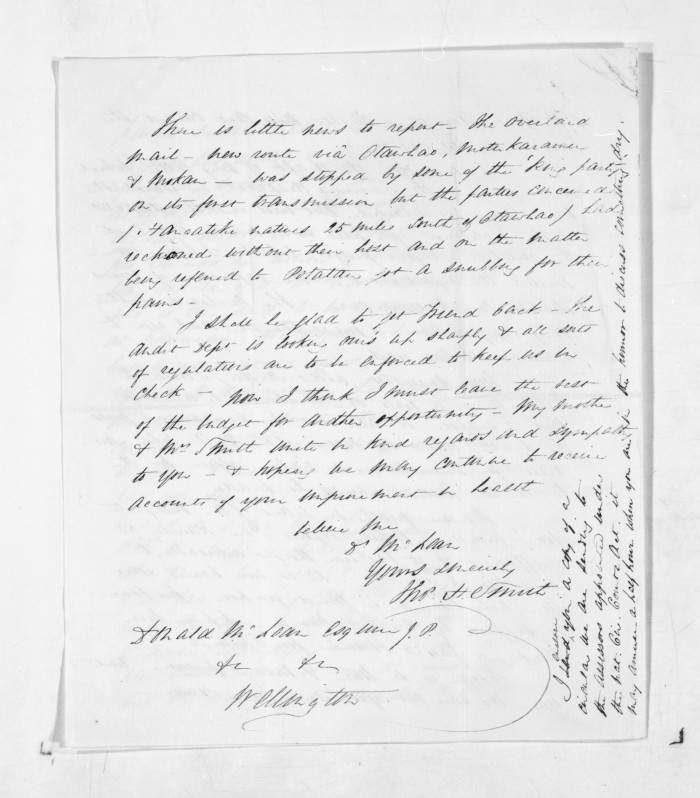 There is little news to report - The overland
mail - new route viâ Otawhao, Motukaramu
& Mokau - was stopped by some of the King party
on its first transmission but the parties concerned
( Hangatiki natives 25 miles south of Otawhao) had
reckoned without their host and on the matter
being referred to Potatau got a snubbing for their
pains -
I shall be glad to get Friend back - The
Audit Dept is looking ours up sharply & all sorts
of regulations are to be enforced to keep us in
check - Now I think I must leave the rest
of the budget for another opportunity - My Mother
& Mrs Smith unite in kind regards and sympathy
to you - & hoping we may continue to receive
accounts of your improvement in health
believe me
Dr McLean
Yours sincerely
Thos. H Smith
Donald McLean Esquire J.P.
&c &c
Wellington
I enclose
you a copy of a
circular we are sending to
the assessors appointed under
the Nat. Cir. Courts Act it
may amuse a half hour when you are in the humor to discuss something dry.